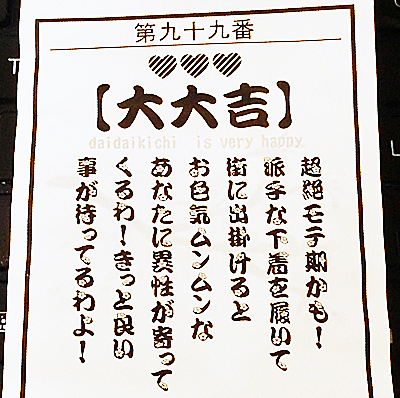 第九十九番
【大大吉】
daidaikichi is very happy
超絶モテ期かも！
派手な下着を履いて
街に出掛けると
お色気ムンムンな
あなたに異性が寄って
くるわ！きっと良い
事が待ってるわよ！